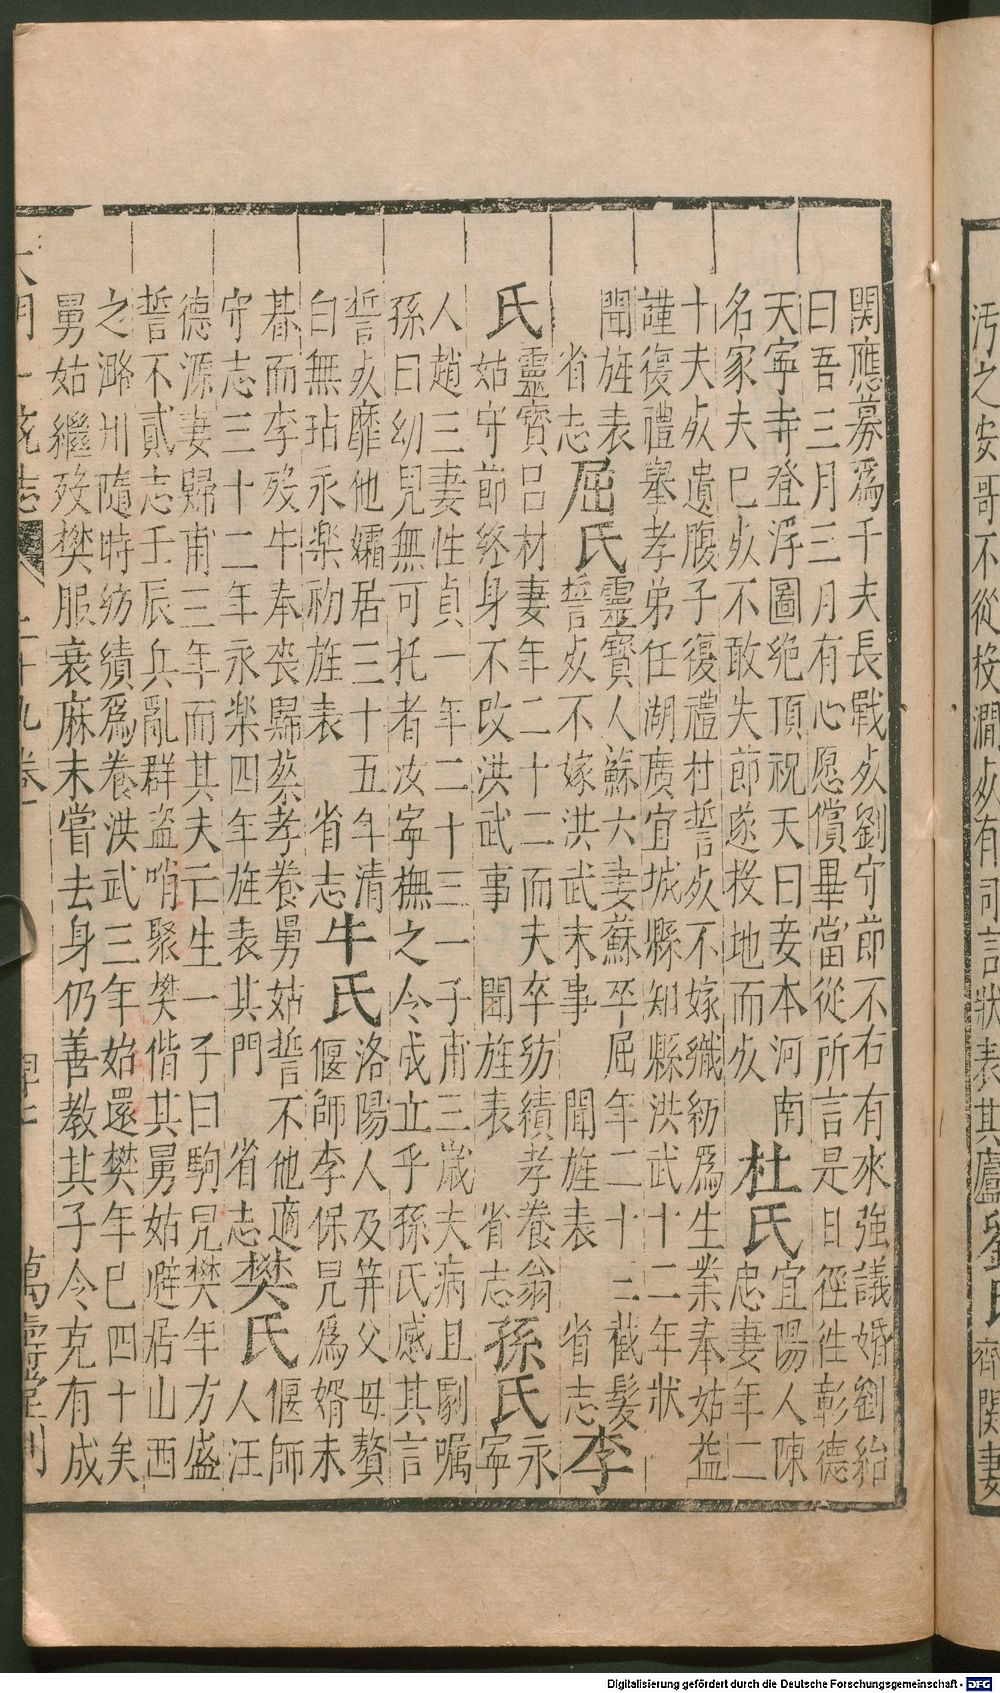 污之安哥不從投澗死有司言狀表其廬劉氏齊関妻
関應募爲千夫長戰死劉守節不右有來強議婚劉紿
曰吾三月三月有心愿償畢當從所言是日徑徃彰德
天寜寺登浮圖絶頂祝天曰妾本河南
名家夫已死不敢失節遂投地而死
杜氏
宜陽人陳
忠妻年二
十夫死遺腹子復禮村誓死不嫁織紡爲生業奉姑益
謹復禮舉孝弟任湖廣宜城縣知縣洪武十二年狀
聞旌表
省志
屈氏
靈寳人蘇六妻蘇卒屈年二十三截髮
誓死不嫁洪武末事 聞旌表 省志
李
氏
靈寳吕材妻年二十二而夫卒紡績孝養翁
姑守節終身不改洪武事 聞旌表 省志
孫氏
永
寜
人趙三妻性貞一年二十三一子甫三歲夫病且劇嘱
孫曰幼兒無可托者汝寜撫之令成立乎孫氏感其言
誓死靡他孀居三十五年清
白無玷永樂初旌表 省志
牛氏
洛陽人及笄父母贅
偃師李保兒爲婿未
朞而李殁牛奉丧歸葬孝養舅姑誓不他適
守志三十二年永樂四年旌表其門 省志
樊氏
偃師
人汪
德源妻歸甫三年而其夫亡生一子曰駒兒樊年方盛
誓不貳志壬辰兵亂群盗哨聚樊偕其舅姑避居山西
之潞州隨時紡績爲養洪武三年始還樊年已四十矣
舅姑繼殁樊服衰麻未嘗去身仍善教其子今克有成
大明一統志 二十九卷 萬壽堂刊
Digitalisierung gefördert durch die Deutsche Forschungsgemeinschaft - DFG